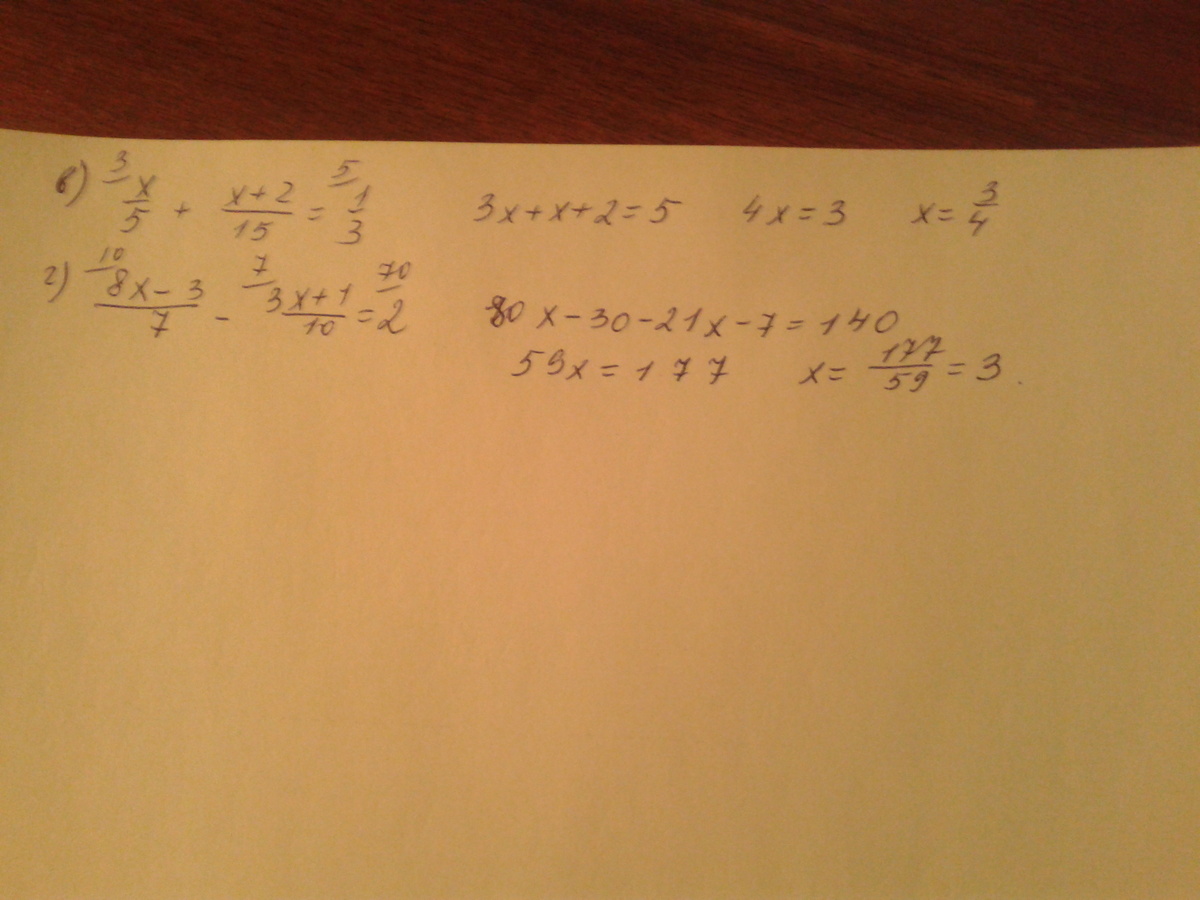 в) 3 x/5 + (x+2)/15 = 5 1/3   3x+x+2=5   4x=3   x=3/4
г) 10 (8x-3)/7 - 7 (3x+1)/10 = 70 2   80x-30-21x-7=140
59x=177   x=177/59=3.